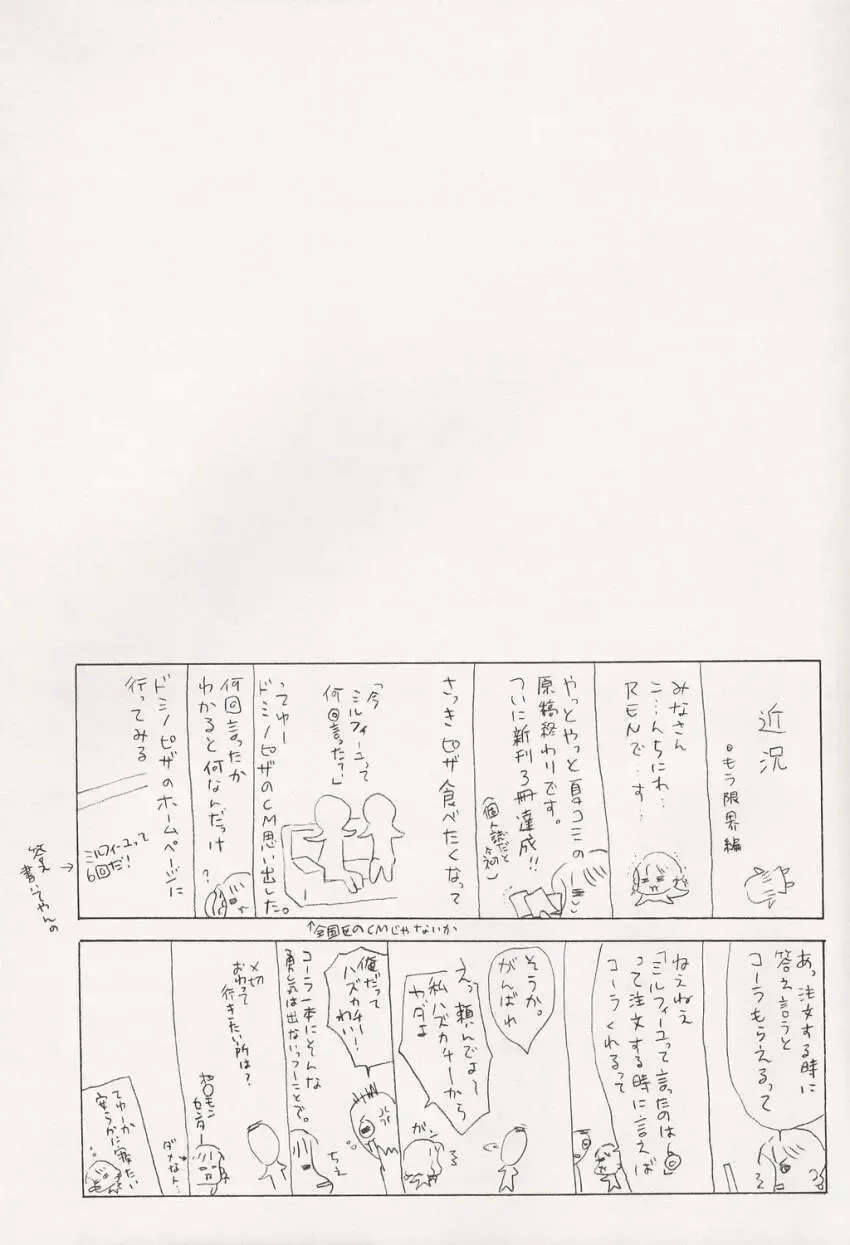 近況
•もう限界編
みなさん
こ…んちにわ…
RENで…す…
やっとやっと夏コミの
原稿終わりです。
ついに新刊3冊達成!!
(個人誌だと
さっきピザ食べたくなって
「今
ミルフィーユって
何回言った?」
ってゆー
ドミノピザのCM思い出した。
↑全国区のCMじゃないか
何回言ったか
わかると何なんだっけ?
ドミノピザのホームページに
行ってみる
ミルフィーユって
6回だ!
答え
書いてやんの
→
あっ注文する時に
答え言うと
コーラもらえるって
ねえねえ
「ミルフィーユって言ったのは6回」
って注文する時に言えば
コーラくれるって
そうか。
がんばれ
えっ頼んでよ〜
私ハズカチーから
ヤダよ
ガン
俺だって
ハズカチー!
わい!
コーラ一本にそんな
勇気は出ないっつーことで。
ちぇ
〆切
おわって
行きたい所は?
ポ○モン
センター
ダメな人…
てゆーか
安らかに寝たい